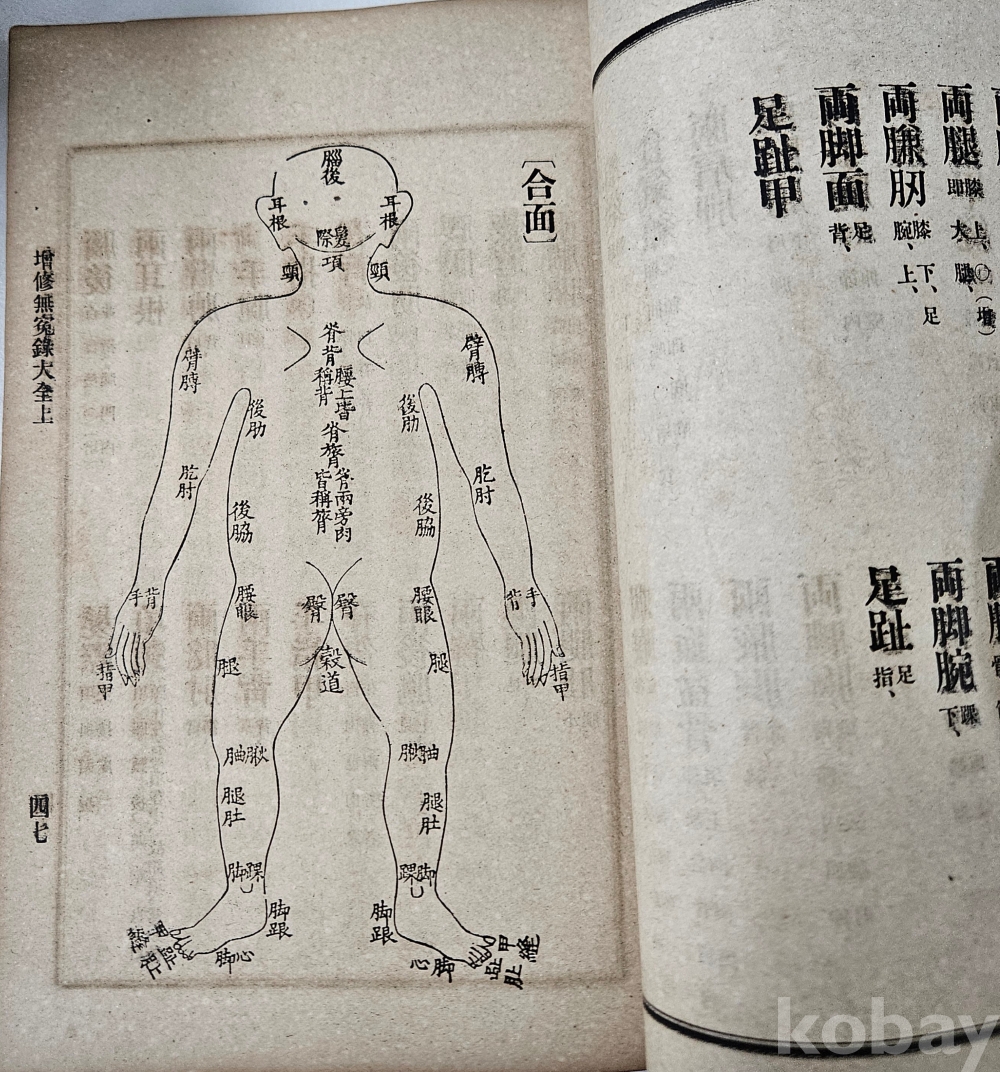 足
両腿 膝上 即大腿、〇(増)
両膁肕 膝下、足腕、上、
両脚面 足背、
足趾甲
両脚腕 踝下、
足趾 足指、
〔合面〕
腦後
耳根
耳根
髮際
項
頸
頸
脊背
腰上皆稱背
脊膂
脊兩旁肉皆稱膂
臂膊
臂膊
後肋
後肋
肐肘
肐肘
後脇
後脇
手背
手背
腰眼
腰眼
臀
臀
指甲
指甲
腿
腿
穀道
䐐
䐐
腿肚
腿肚
脚踝
脚踝
脚跟
脚跟
脚心
脚心
甲縫
甲縫
趾
趾
肚
肚
增修無冤錄大全上
四七
kobay